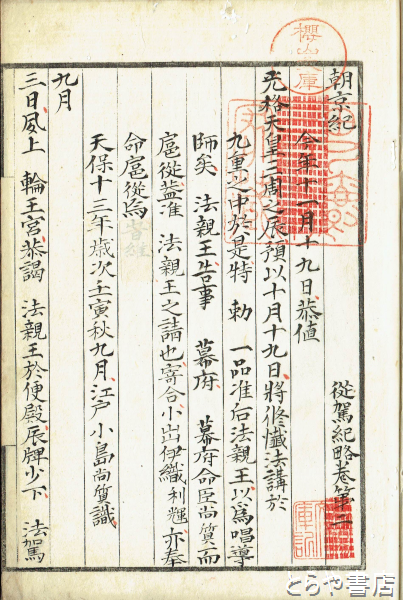 朝京紀
從駕紀略卷第二
今年十一月十九日、恭值
光格天皇三周之辰、預以十月十九日、將修懺法講於
九重之中、於是特 勅 一品准后法親王、以爲唱導
師矣 法親王告事 幕府 幕府命臣尚質而
扈從、蓋准 法親王之請也、寄合小出伊織利輝、亦奉
命扈從焉
天保十三年歲次壬寅秋九月、江戶小島尚質識
九月
三日、夙上 輪王宮、恭謁 法親王於便殿、辰牌少下 法駕
櫻山文庫
とらや書店